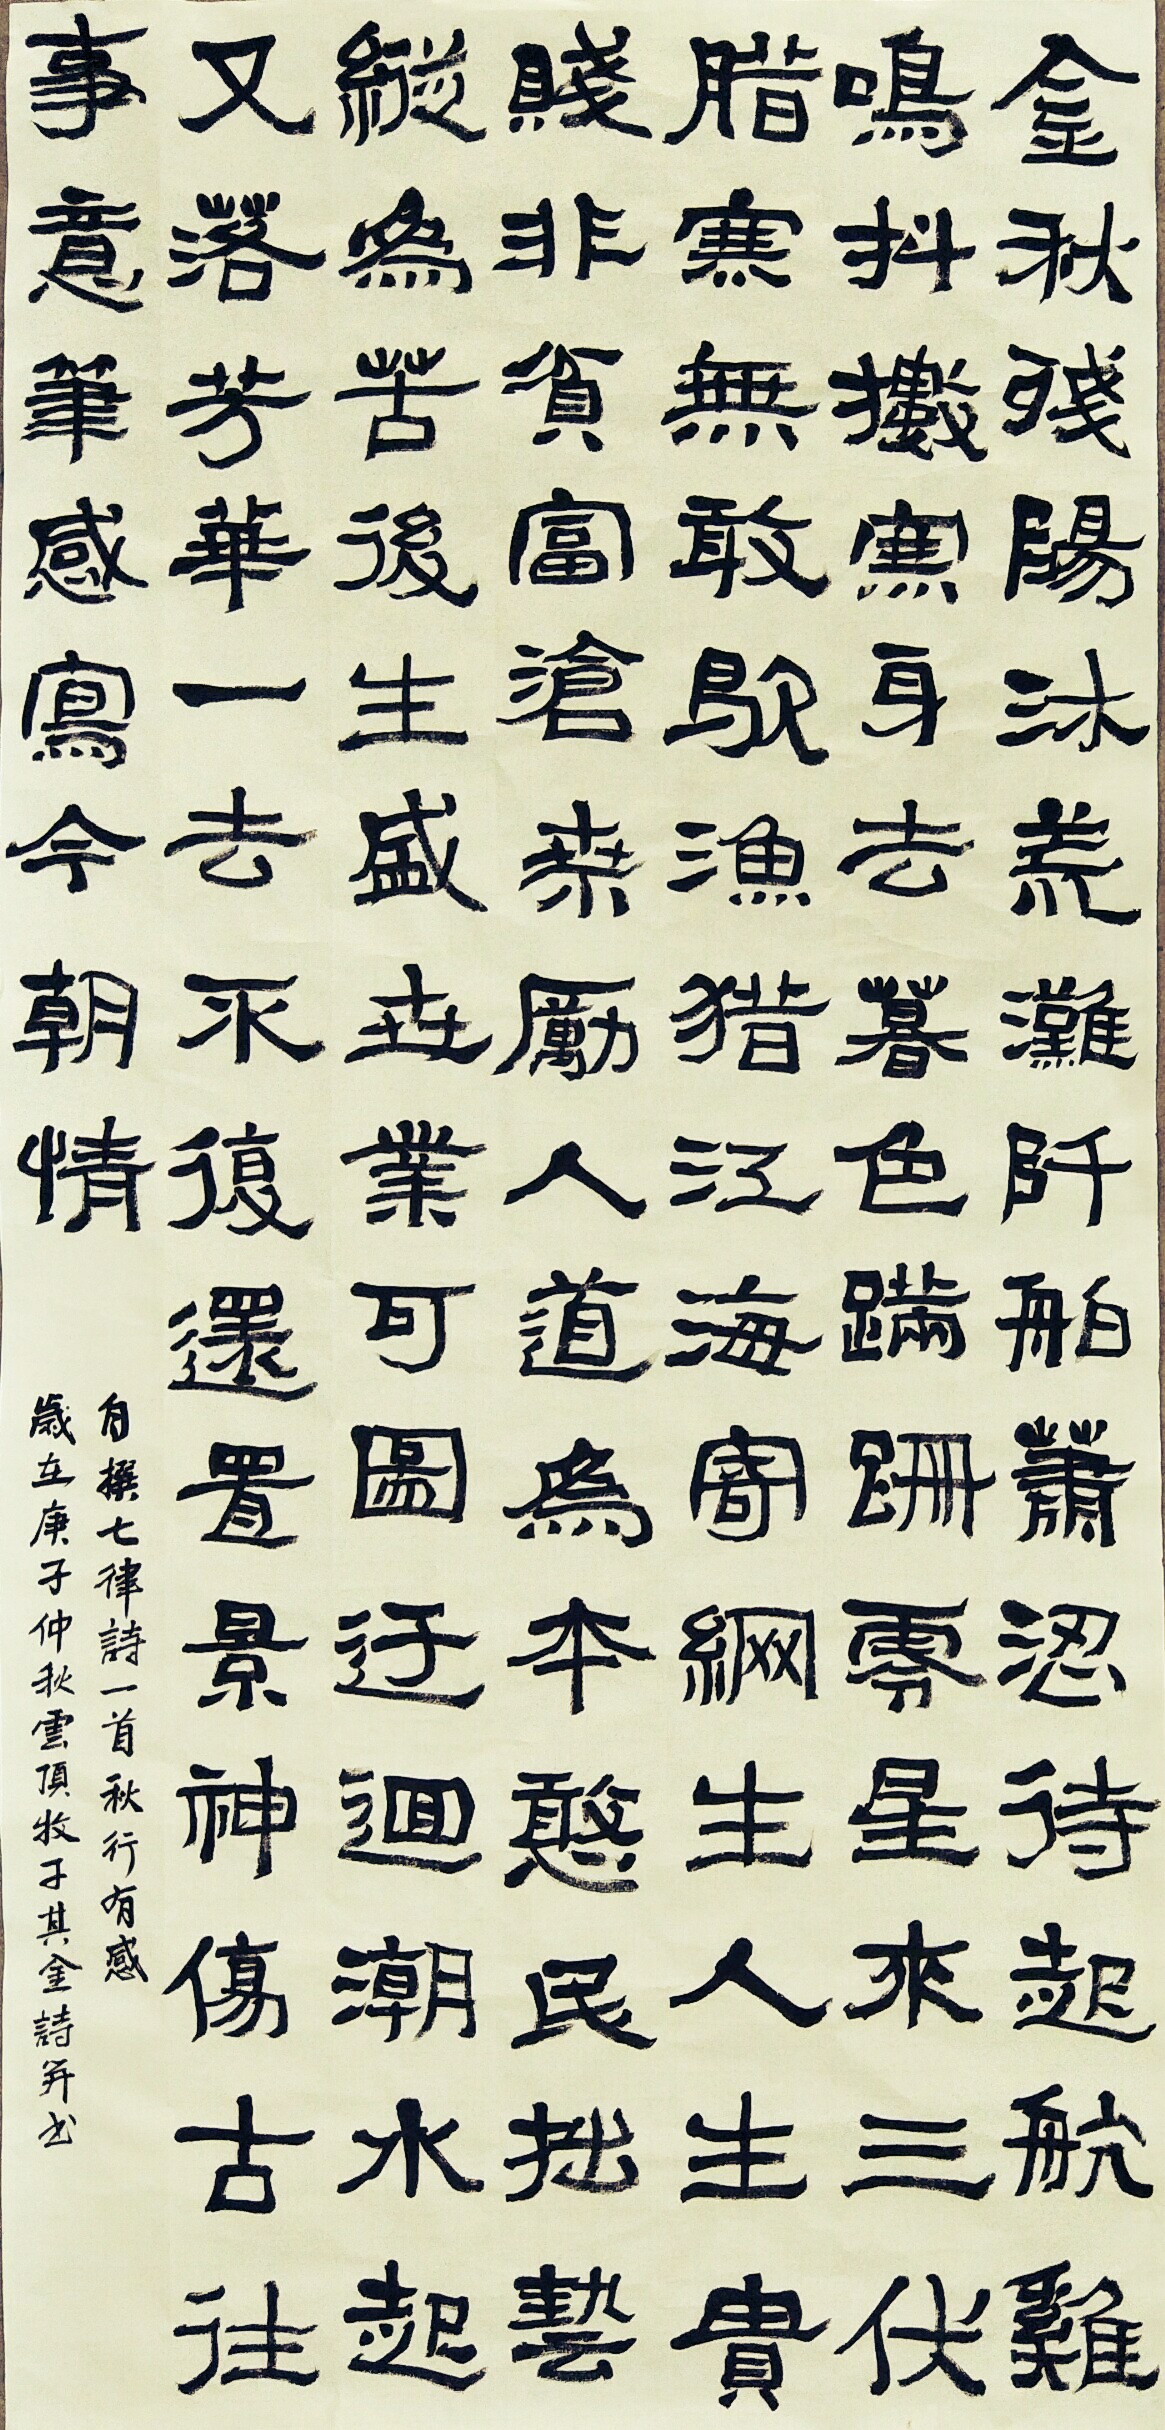 金秋殘陽沐荒灘阡舶蕭認待起航雞
鳴抖擻寒身去暮色蹣跚零星來三伏
腊寒無敢歇漁猎江海寄網生人生貴
賤非貧富滄桑勵人道為本憨民拙藝
縱為苦後生盛世業可圖迂迴潮水起
又落芳華一去不復還置景神傷古往
事意筆感寫今朝情
自撰七律詩一首秋行有感
歲在庚子仲秋雲頂牧子其金詩并书